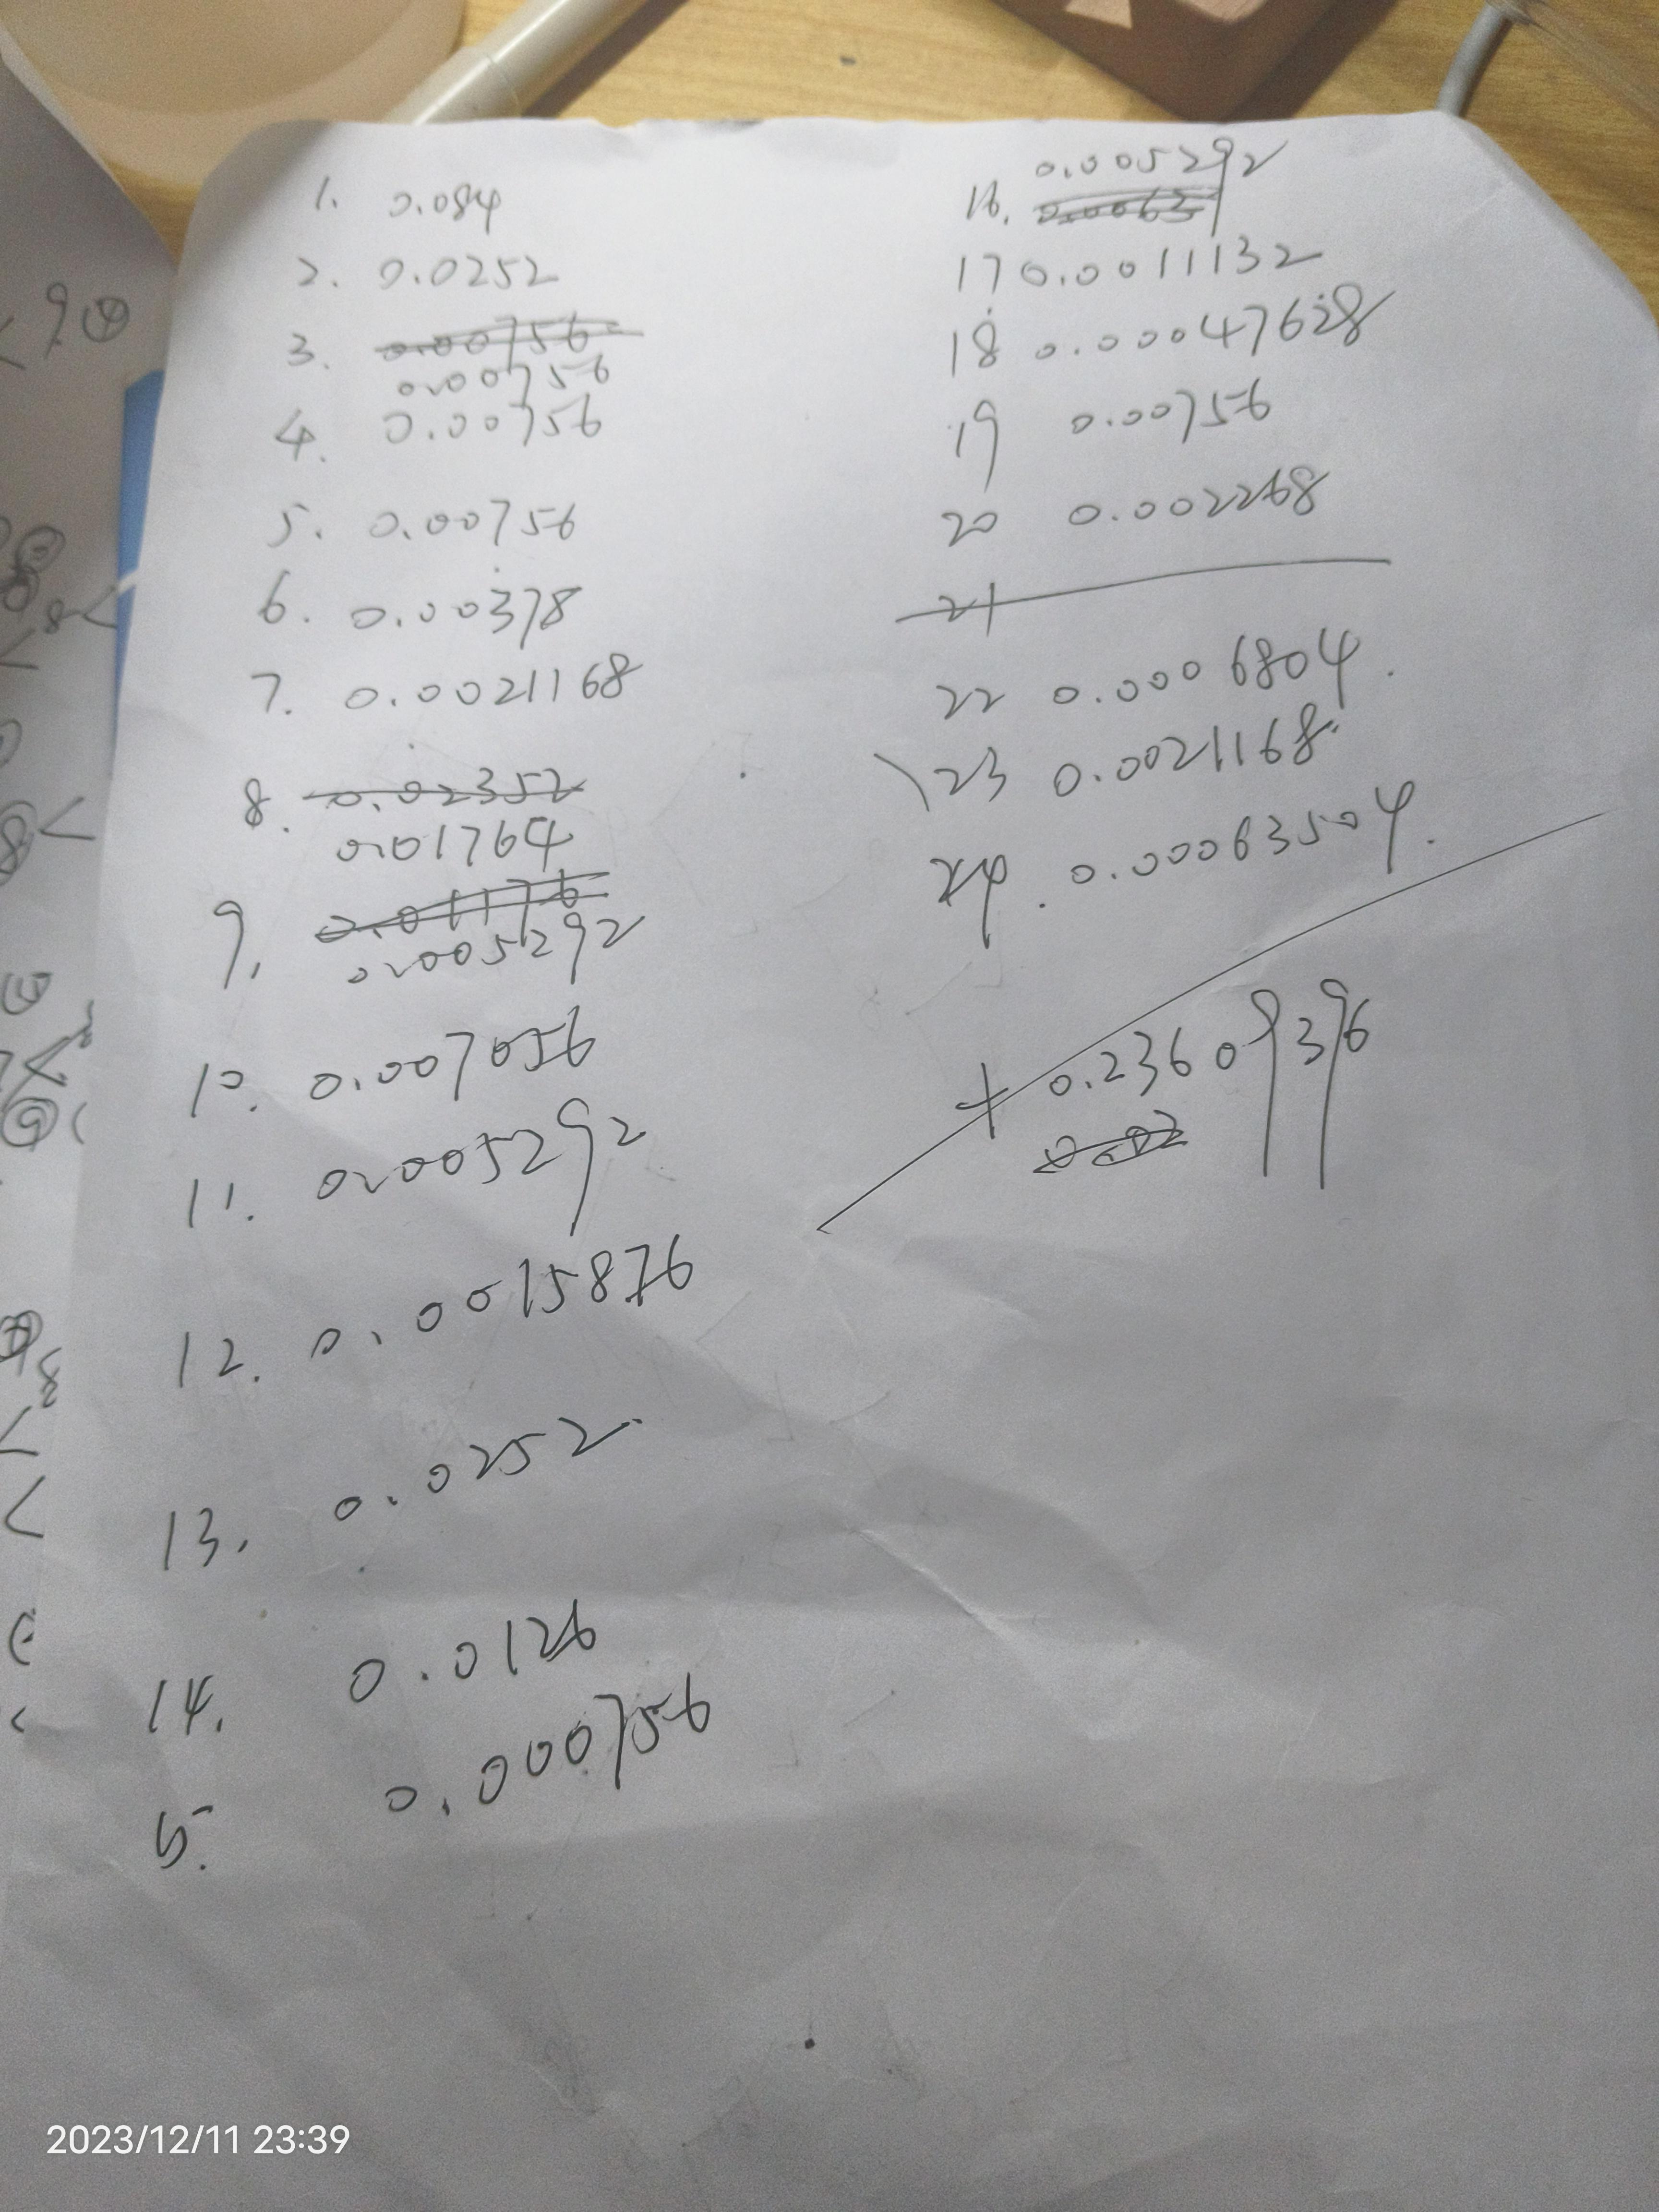 1. 0.084
2. 0.0252
3. 0.00756
0.00756
4. 0.00756
5. 0.00756
6. 0.00378
7. 0.0021168
8. 0.02352
0.01764
9. 0.01176
0.005292
10. 0.007056
11. 0.005292
12. 0.0015876
13. 0.0252
14. 0.0126
15. 0.000756
0.005292
16. 0.0063
17 0.0011132
18 0.00047628
19 0.00756
20 0.002268
21
22 0.0006804.
23 0.0021168
24. 0.00063504.
+ 0.23609396
2023/12/11 23:39